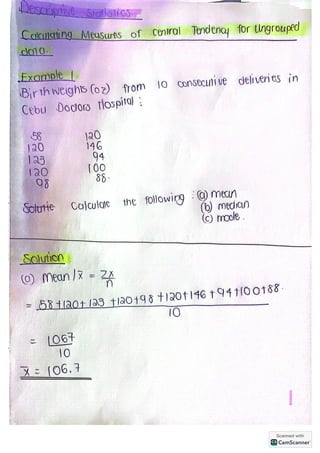 Descriptive Statistics.
Calculating Measures of Central Tendency for Ungrouped
data.
Example 1
Birthweighs (oz) from 10 consecutive deliveries in
Cebu Doctors Hospital :
58 120
120 146
123 94
120 100
98 88.
Calculate the following : (a) mean
(b) median
(c) mode.
Solution
(a) Mean / x̄ = Σx / n
= 58 + 120 + 123 + 120 + 98 + 120 + 146 + 94 + 100 + 88.
10
= 1067
10
x̄ = 106.7
Scanned with
CS CamScanner